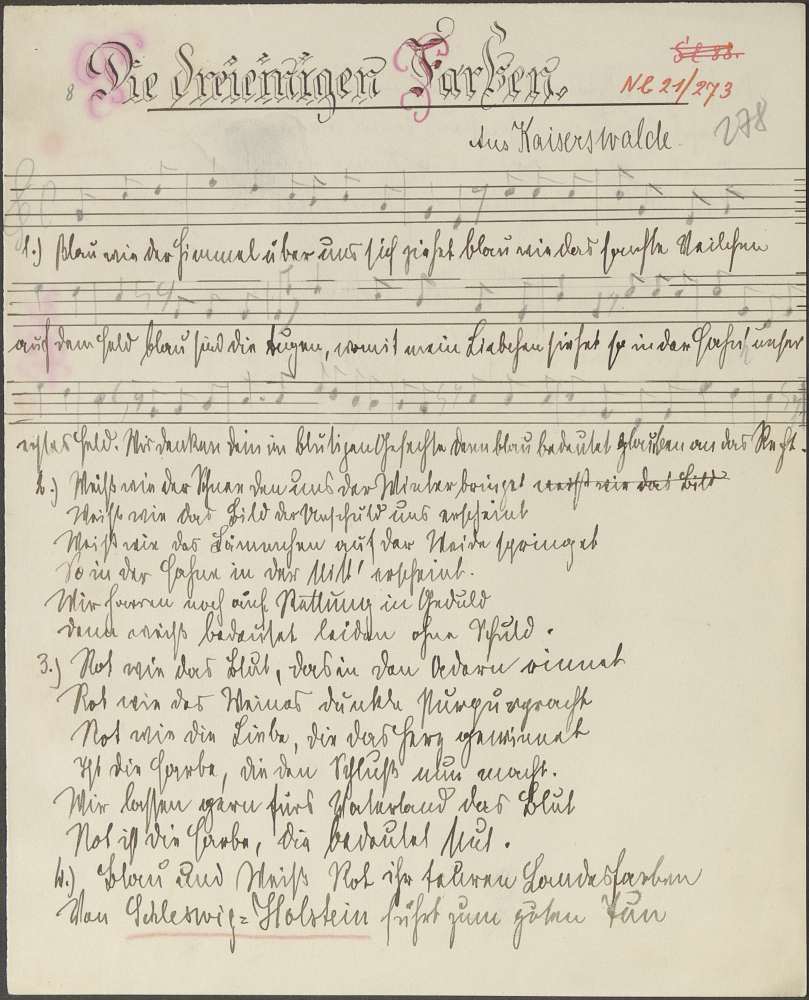 8 Die dreieinigen Farben.
Nl 21/273
Aus Kaiserswalde.
278
1.) Blau wie der Himmel über uns sich ziehet blau wie das sanfte Veilchen
auf dem Feld blau sind die Augen, womit mein Liebchen siehet so in der Fahn' unser
erstes Feld. Wir denken dein im blutigen Gefechte denn blau bedeutet glauben an das Recht.
2.) Weiß wie der Schnee den uns der Winter bringet weiß wie das Bild
Weiß wie das Bild der Unschuld uns erscheint
Weiß wie das Lämmchen auf der Weide springet
So in der Fahne in der Mitt' erscheint.
Wir harren noch auf Rettung in Geduld
denn weiß bedeutet leiden ohne Schuld.
3.) Rot wie das Blut, das in den Adern rinnet
Rot wie des Weines dunkle Purpurpracht
Rot wie die Liebe, die das Herz gewinnet
Ist die Farbe, die den Schluß nun macht.
Wir lassen gern fürs Vaterland das Blut
Rot ist die Farbe, die bedeutet Mut.
4.) Blau und Weiß Rot ihr teuren Landesfarben
Von Schleswig=Holstein führt zum guten Tun